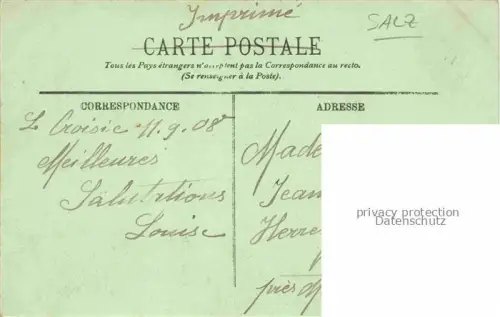 Imprimé
SALZ
CARTE POSTALE
Tous les Pays étrangers n'acceptent pas la Correspondance au recto.
(Se renseigner à la Poste).
CORRESPONDANCE
Le Croisic 11.9.08
Meilleures
Salutations
Louise
ADRESSE
Made
Jean
Herre
près
privacy protection
Datenschutz